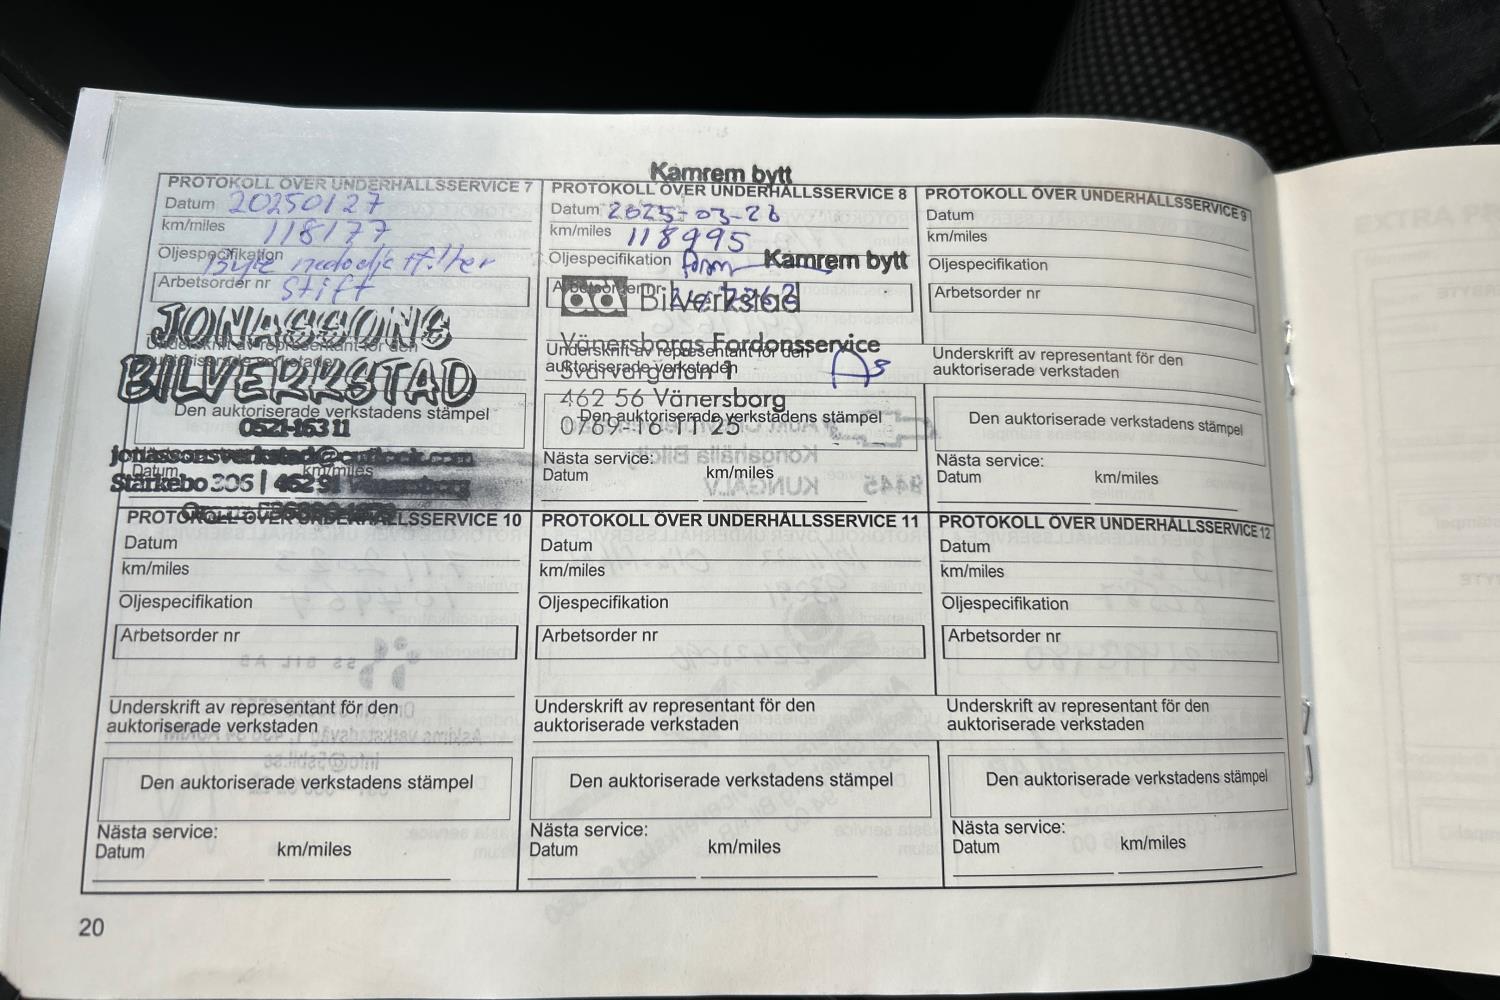 Kamrem bytt
PROTOKOLL ÖVER UNDERHÅLLSSERVICE 7
Datum 20250127
km/miles 118177
Oljespecifikation Byte motorolje + filter
Arbetsorder nr Stift
JONASSONS
Underskrift av representant för den
auktoriserade verkstaden
BILVERKSTAD
Den auktoriserade verkstadens stämpel
0521-163 11
jonassonsverkstad@outlook.com
Datum km/miles
Stärkebo 306 | 462 91 Vänersborg
PROTOKOLL ÖVER UNDERHÅLLSSERVICE 8
Datum 2025-03-26
km/miles 118995
Oljespecifikation Kamrem bytt
Arbetsorder nr
ad Bilverkstad
Vänersborgs Fordonsservice
Underskrift av representant för den
auktoriserade verkstaden
Svarvargatan 1
462 56 Vänersborg
Den auktoriserade verkstadens stämpel
0769-16 11 25
Nästa service:
Datum km/miles
PROTOKOLL ÖVER UNDERHÅLLSSERVICE 9
Datum
km/miles
Oljespecifikation
Arbetsorder nr
Underskrift av representant för den
auktoriserade verkstaden
Den auktoriserade verkstadens stämpel
Nästa service:
Datum km/miles
PROTOKOLL ÖVER UNDERHÅLLSSERVICE 10
Datum
km/miles
Oljespecifikation
Arbetsorder nr
Underskrift av representant för den
auktoriserade verkstaden
Den auktoriserade verkstadens stämpel
Nästa service:
Datum km/miles
PROTOKOLL ÖVER UNDERHÅLLSSERVICE 11
Datum
km/miles
Oljespecifikation
Arbetsorder nr
Underskrift av representant för den
auktoriserade verkstaden
Den auktoriserade verkstadens stämpel
Nästa service:
Datum km/miles
PROTOKOLL ÖVER UNDERHÅLLSSERVICE 12
Datum
km/miles
Oljespecifikation
Arbetsorder nr
Underskrift av representant för den
auktoriserade verkstaden
Den auktoriserade verkstadens stämpel
Nästa service:
Datum km/miles
20